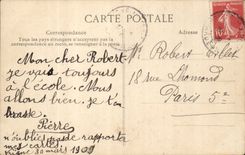 CARTE POSTALE
Correspondance
Tous les pays étrangers n'acceptent pas
la correspondance au recto, se renseigner à la poste
Mon cher Robert,
je vais toujours
à l'école. Nous
allons bien, je t'em
brasse.
Pierre
n'oublie pas de rapporter
mes cartes
30 mars 1909
Mr Robert
18 rue Lhomond
Paris 5e